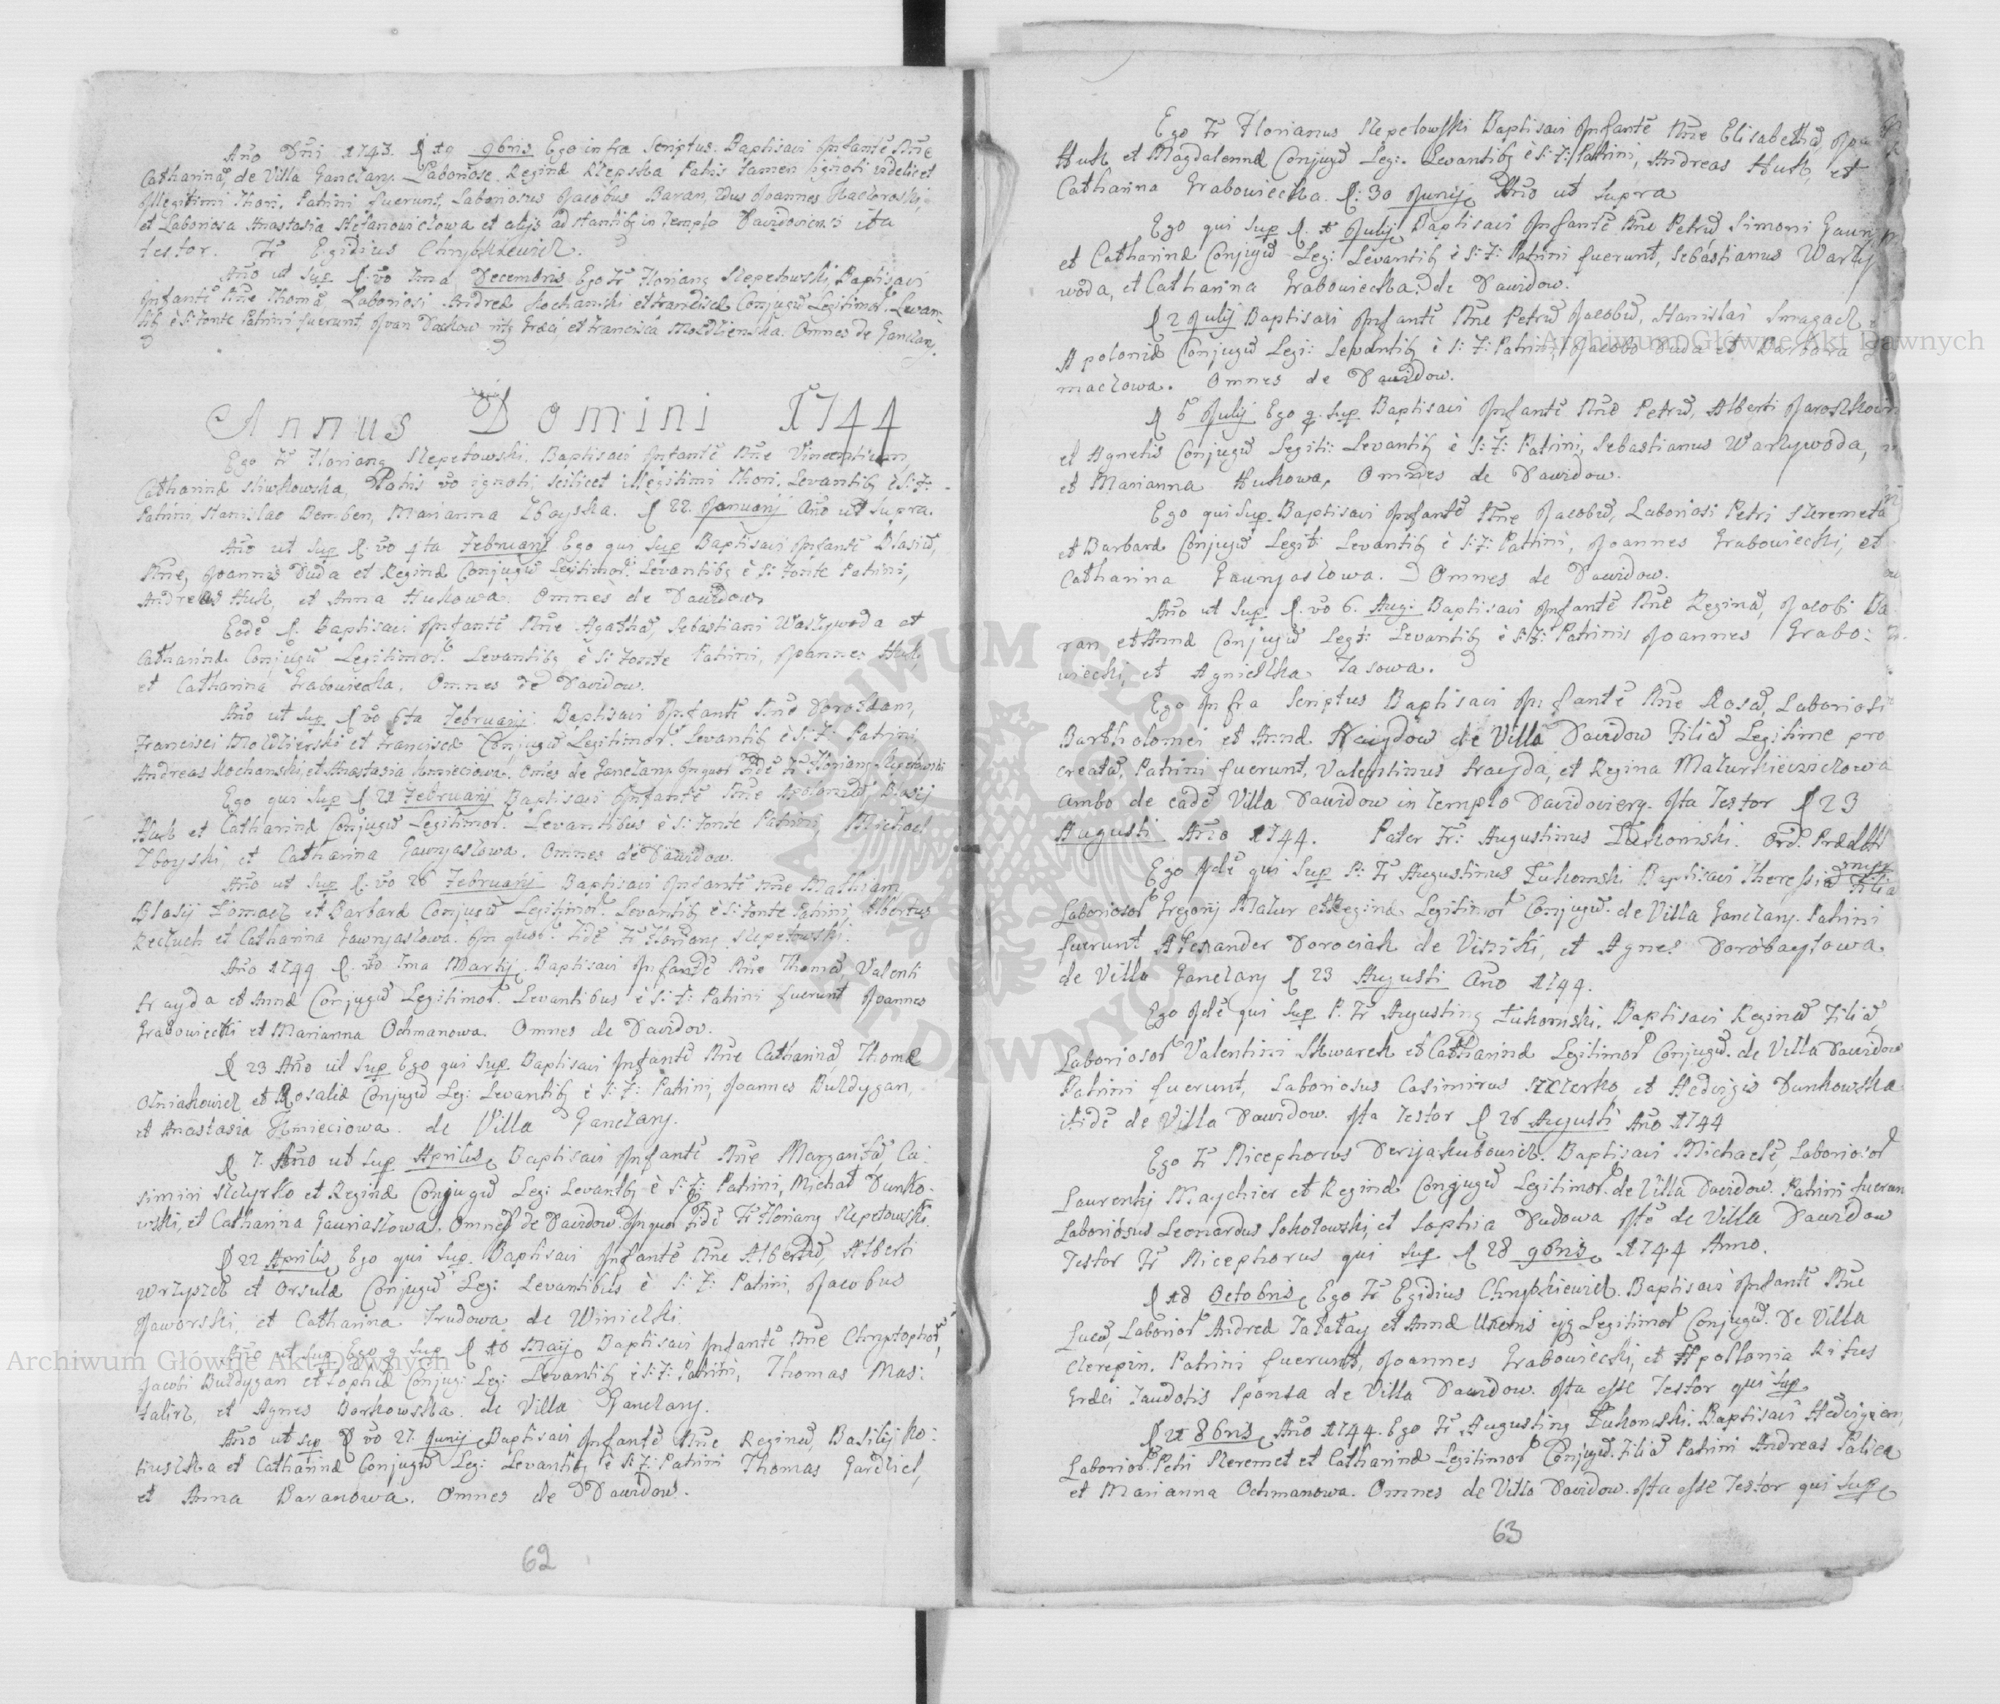 Año Dñi 1743. D 10 9bris Ego infra Scriptus Baptisavi Infantē Nñe
Catharinā, de Villa Ganczary Laboriosæ Reginæ Patris tamen ignoti videlicet
Illegitimi Thori. Patrini fuerunt, Laboriosus Jacobus Baran, Joannes
et Laboriosa Anastasia Stefanowiczowa et alijs adstantibq in Templo Davidoviensi ita
testor. Fr Egidius
Año ut sup D. vo 7ma Decembris Ego Fr Florianq Slepetowski, Baptisavi
Infantē Nñe Thomā Laboriosi Andreæ Kochanski et Franciscæ Conjugū Legitimor. Levan-
tibq è S: Fonte Patrini fuerunt, Ivan Dackow ritq Græci, et Francisca Mozdzienska. Omnes de Ganczary.
Annus Domini 1744
Ego Fr Florianq Slepetowski. Baptisavi Infantē Nñe Vincentium,
Catharinæ Sliwkowska, Patris vo ignoti, scilicet illegitimi Thori. Levantibq è S: F:
Patrini, Stanislao Bemben, Marianna Zboyska. D 22. Januarij Año ut Supra.
Año ut Sup D. vo 4ta Februarij Ego qui Sup Baptisavi Infantē Blasiū,
Nñe, Joannis Duda et Reginæ Conjugū Legitimor. Levantibq è S: Fonte Patrini,
Andreas Huk, et Anna Hukowa. Omnes de Dawidow
Eodē D. Baptisavi Infantē Nñe Agathā, Sebastiani Warzywoda et
Catharinæ Conjugū Legitimor. Levantibq è S: Fonte Patrini, Joannes Huk,
et Catharina Grabowiecka. Omnes de Dawidow.
Año ut Sup D vo 6ta Februarij. Baptisavi Infantē Nñe Dorotheam,
Francisci Mozdzierski et Franciscæ Conjugū Legitimor. Levantibq è S: F: Patrini
Andreas Kochanski, et Anastasia Kmieciowa. Omēs de Ganczary. In quor Fidē Fr Florianq Slepetowski
Ego qui Sup D 21 Februarij Baptisavi Infantē Nñe Apoloniā, Blasij
Huk et Catharinæ Conjugū Legitimor. Levantibus è S: Fonte Patrini, Michael
Zboyski, et Catharina Gawnjaslowa. Omnes de Dawidow.
Año ut Sup D. vo 26 Februarij Baptisavi Infantē Nñe Mathiam,
Blasij Tomacz et Barbaræ Conjugū Legitimor. Levantibq è S: Fonte Patrini, Albertus
et Catharina Gawnjaslowa. In quor. Fidē Fr Florianq Slepetowski.
Año 1744 D. vo 7ma Martij Baptisavi Infantē Nñe Thomā, Valenti
Frayda et Annæ Conjugū Legitimor. Levantibus è S: F: Patrini fuerunt Joannes
Grabowiecki et Marianna Ochmanowa. Omnes de Davidov.
D 23 Año ut Sup Ego qui Sup Baptisavi Infantē Nñe Catharinā, Thomæ
Olniakowicz et Rosaliæ Conjugū Leg: Levantibq è S: F: Patrini, Joannes Buldygan
et Anastasia Kmieciowa. de Villa Ganczary.
D 7. Año ut Sup Aprilis, Baptisavi Infantē Nñe Margaritā, Ca:
simiri Sczyrko et Reginæ Conjugū Leg: Levantibq è S: F: Patrini, Michał Dunko-
wski, et Catharina Gauniaslowa. Omnes de Dawidow. In quor Fidē Fr Florianq Slepetowski.
D 22 Aprilis, Ego qui Sup. Baptisavi Infantē Nñe Albertū, Alberti
Wrzyszcz et Orsulæ Conjugū Leg: Levantibus è S: F: Patrini, Jacobus
Jaworski, et Catharina Trudowa de Winiczki.
Año ut Sup Ego q Sup D 10 Maij, Baptisavi Infantē Nñe Chryptophor,
Jacobi Buldygan et Sophiæ Conjug: Leg: Levantibq è S: F: Patrini, Thomas Mas:
talirz, et Agnes Borkowska. de Villa Ganczary.
Año ut Sup D vo 27. Junij Baptisavi Infantē Nñe Reginā, Basilij Ko:
tiuszka et Catharinæ Conjugū Leg: Levantibq è S: F: Patrini Thomas Gardziel,
et Anna Baranowa. Omnes de Dawidow.
62
Ego Fr Florianus Slepetowski Baptisavi Infantē Nñe Elisabethā,
Huk et Magdalenæ Conjugū Leg: Levantibq è S: F: Patrini, Andreas Huk, et
Catharina Grabowiecka. D: 30 Junij, Año ut Supra
Ego qui Sup D. 1 Julij Baptisavi Infantē Nñe Petrū Simoni
et Catharinæ Conjugū Leg: Levantibq è S: F: Patrini fuerunt, Sebastianus Warzy
woda, et Catharina Grabowiecka. de Dawidow.
D 2 Julij Baptisavi Infantē Nñe Petrū Jacobū, Stanislai Smagacz
Apoloniæ Conjugū Leg: Levantibq è S: F: Patrini, Jacobo Duda et Barbara
maczowa. Omnes de Dawidow.
D 6 Julij Ego q. Sup Baptisavi Infantē Nñe Petrū, Alberti
et Agnetis Conjugū Legiti: Levantibq è S: F: Patrini, Sebastianus Warzywoda,
et Marianna Hukowa, Omnes de Dawidow.
Ego qui Sup. Baptisavi Infantē Nñe Jacobū, Laboriosi Petri Szeremeta
et Barbaræ Conjugū Legit: Levantibq è S: F: Patrini, Joannes Grabowiecki, et
Catharina Gawnjaslowa. Omnes de Dawidow.
Año ut Sup D. vo 6. Aug: Baptisavi Infantē Nñe Reginā, Jacobi Ba
ran et Annæ Conjugū Legt: Levantibq è S: F: Patrinis Joannes Grabo:
wiecki, et Agnieszka Tasowa.
Ego Infra Scriptus Baptisavi Infantē Nñe Rosā, Laboriosi
Bartholomei et Annæ de Villa Dawidow Filiā Legitime pro
creatā, Patrini fuerunt, Valentinus Frayda, et Regina Mazurkiewiczowa
ambo de eadē Villa Dawidow in Templo Davidovienq. Ita Testor D 23
Augusti Año 1744. Pater Fr: Augustinus Łukomski. Ord. Prædtt
Ego Idē qui Sup P. Fr Augustinus Łukomski Baptisavi Theresiā Filiā
Laboriosor Gregorij Mazur et Reginæ Legitimor Conjugū. de Villa Ganczary. Patrini
fuerunt Alexander Dorociak de Viniski, et Agnes Dorobaytowa
de Villa Ganczary D 23 Augusti Año 1744.
Ego Idē qui Sup P. Fr Augustinq Łukomski. Baptisavi Reginā Filiā,
Laboriosor Valentini Skwarek et Catharinæ Legitimor Conjugū. de Villa Dawidow
Patrini fuerunt, Laboriosus Casimirus Szczerko et Hedvigis Dunkowska
itidē de Villa Dawidow. Ita Testor D 26 Augusti Año 1744
Ego Fr Nicephorus Derijakubowicz. Baptisavi Michaelē, Laboriosor
Laurentij et Reginæ Conjugū Legitimor. de Villa Dawidow. Patrini fuerun
Laboriosus Leonardus Sokołowski, et Sophia Dudowa Itē de Villa Dawidow
Testor Fr Nicephorus qui Sup D 28 9bris, 1744 Anno.
D 18 Octobris, Ego Fr Egidius Baptisavi Infantē Nñe
Lucā, Laborior Andreæ Tatatay et Annæ Uxoris ejq Legitimor Conjugū. De Villa
Czerepin. Patrini fuerunt, Joannes Grabowiecki, et Apollonia Ritus
Græci Taudotis Sponsa de Villa Dawidow. Ita esse Testor qui Sup
D 21 8bris, Año 1744. Ego Fr Augustinq Łukomski. Baptisavi Hedvigem,
Laborior Petri Szeremet et Catharinæ Legitimor Conjugū. Filiā Patrini Andreas Palica
et Marianna Ochmanowa. Omnes de Villa Dawidow. Ita esse Testor qui Sup
63
Archiwum Główne Akt Dawnych
Archiwum Główne Akt Dawnych
ARCHIWUM GŁÓWNE AKT DAWNYCH